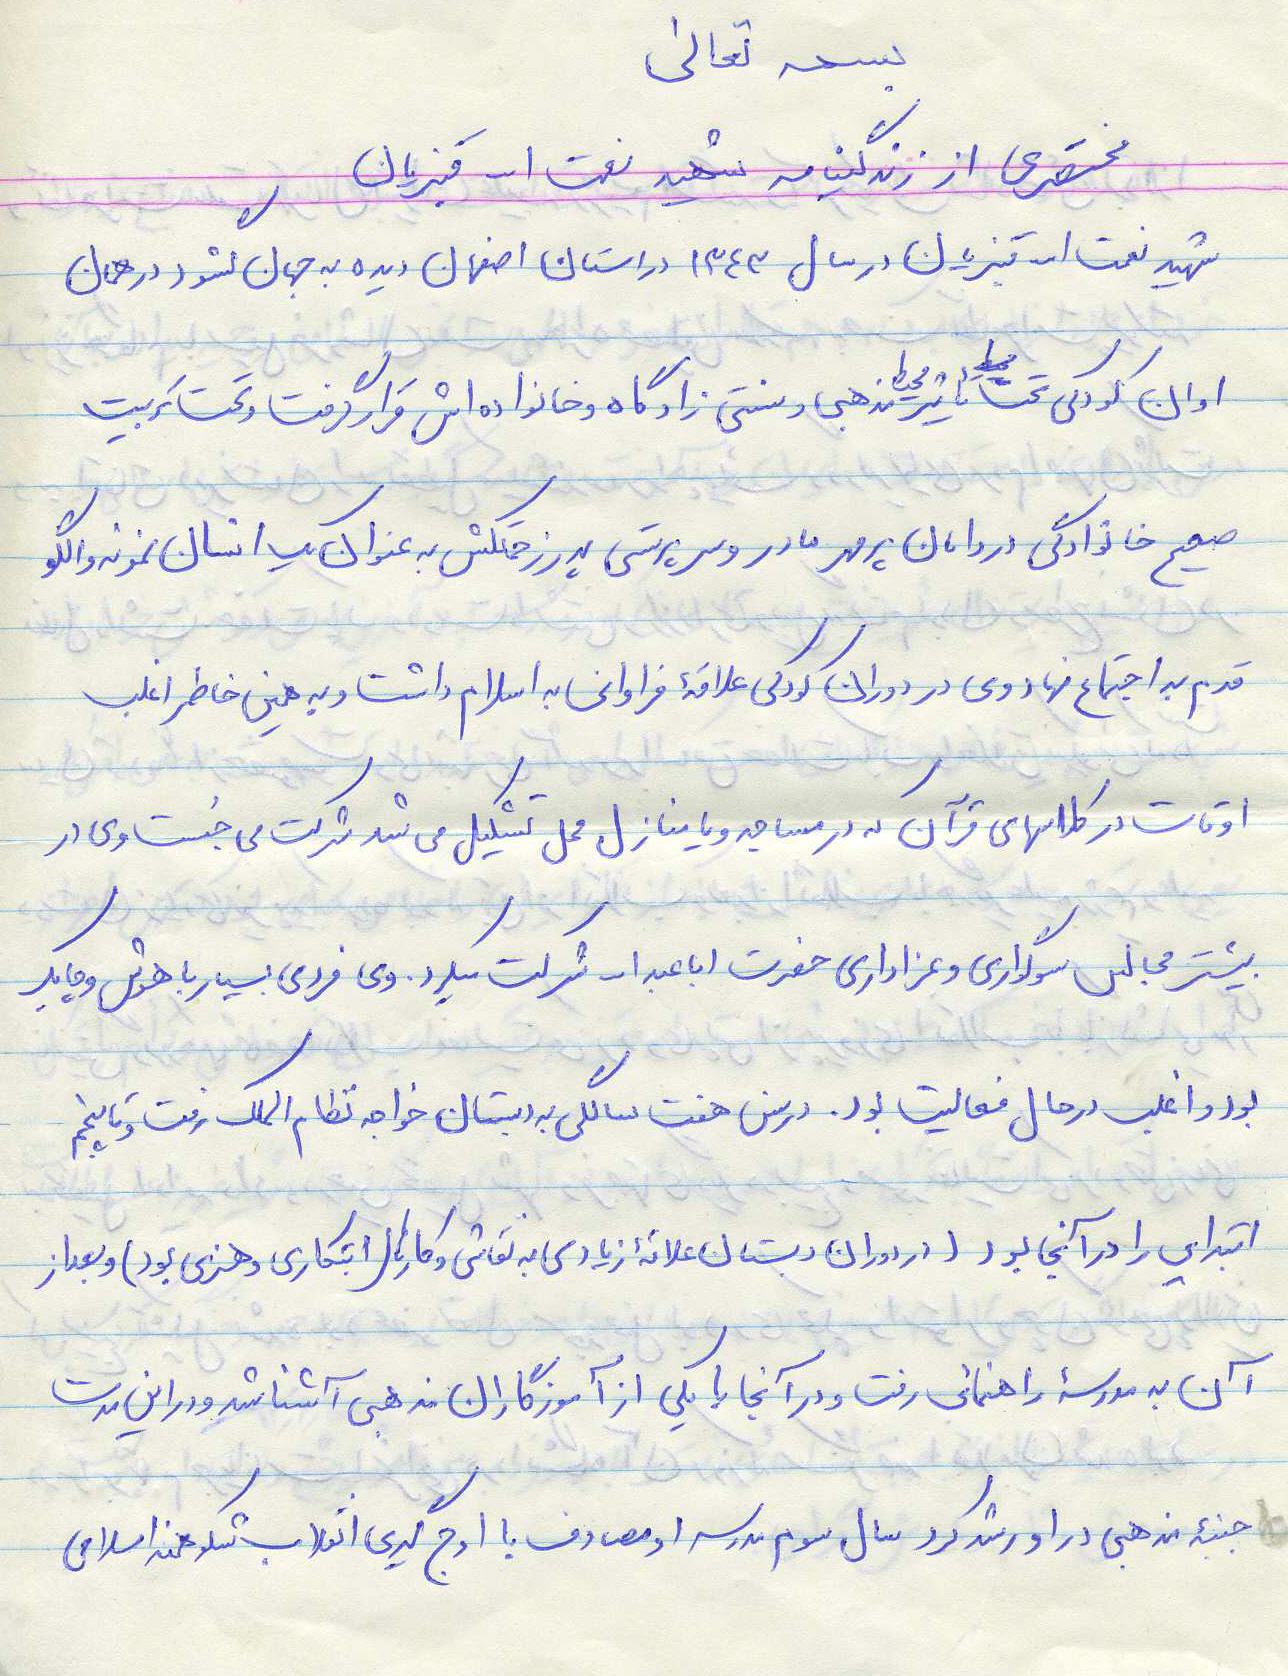 بسمه تعالی
مختصری از زندگینامه شهید نعمت اله قنبریان
شهید نعمت اله قنبریان در سال ۱۳۴۳ در استان اصفهان دیده به جهان گشود در همان
اوان کودکی تحت تأثیر محیط مذهبی و سنتی زادگاه و خانواده اش قرار گرفت و تحت تربیت
صحیح خانوادگی در دامان پر مهر مادر و سرپرستی پدر زحمتکش به عنوان یک انسان نمونه و الگو
قدم به اجتماع نهاد وی در دوران کودکی علاقهٔ فراوانی به اسلام داشت و به همین خاطر اغلب
اوقات در کلاسهای قرآن که در مساجد و یا منازل محل تشکیل می شد شرکت می جست وی در
بیشتر مجالس سوگواری و عزاداری حضرت اباعبداله شرکت میکرد. وی فردی بسیار با هوش و چابک
بود و اغلب در حال فعالیت بود. در سن هفت سالگی به دبستان خواجه نظام الملک رفت و تا پنجم
ابتدایی را در آنجا بود (در دوران دبستان علاقهٔ زیادی به نقاشی و کارهای ابتکاری و هنری بود) و بعد از
آن به مدرسهٔ راهنمائی رفت و در آنجا با یکی از آموزگاران مذهبی آشنا شد و در این مدت
جنبهٔ مذهبی در او رشد کرد سال سوم مدرسه او مصادف با اوج گیری انقلاب شکوهمند اسلامی